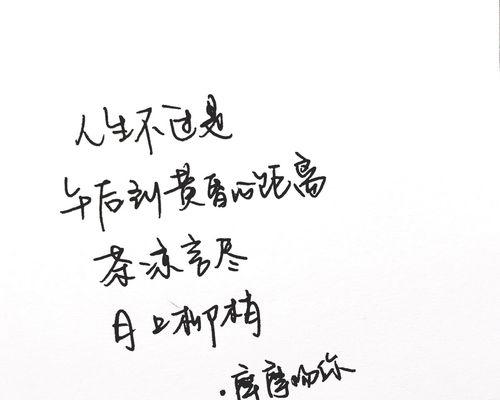 人生不过是
午后到黄昏的距离
茶凉言尽
月上柳梢
.摩摩吻你